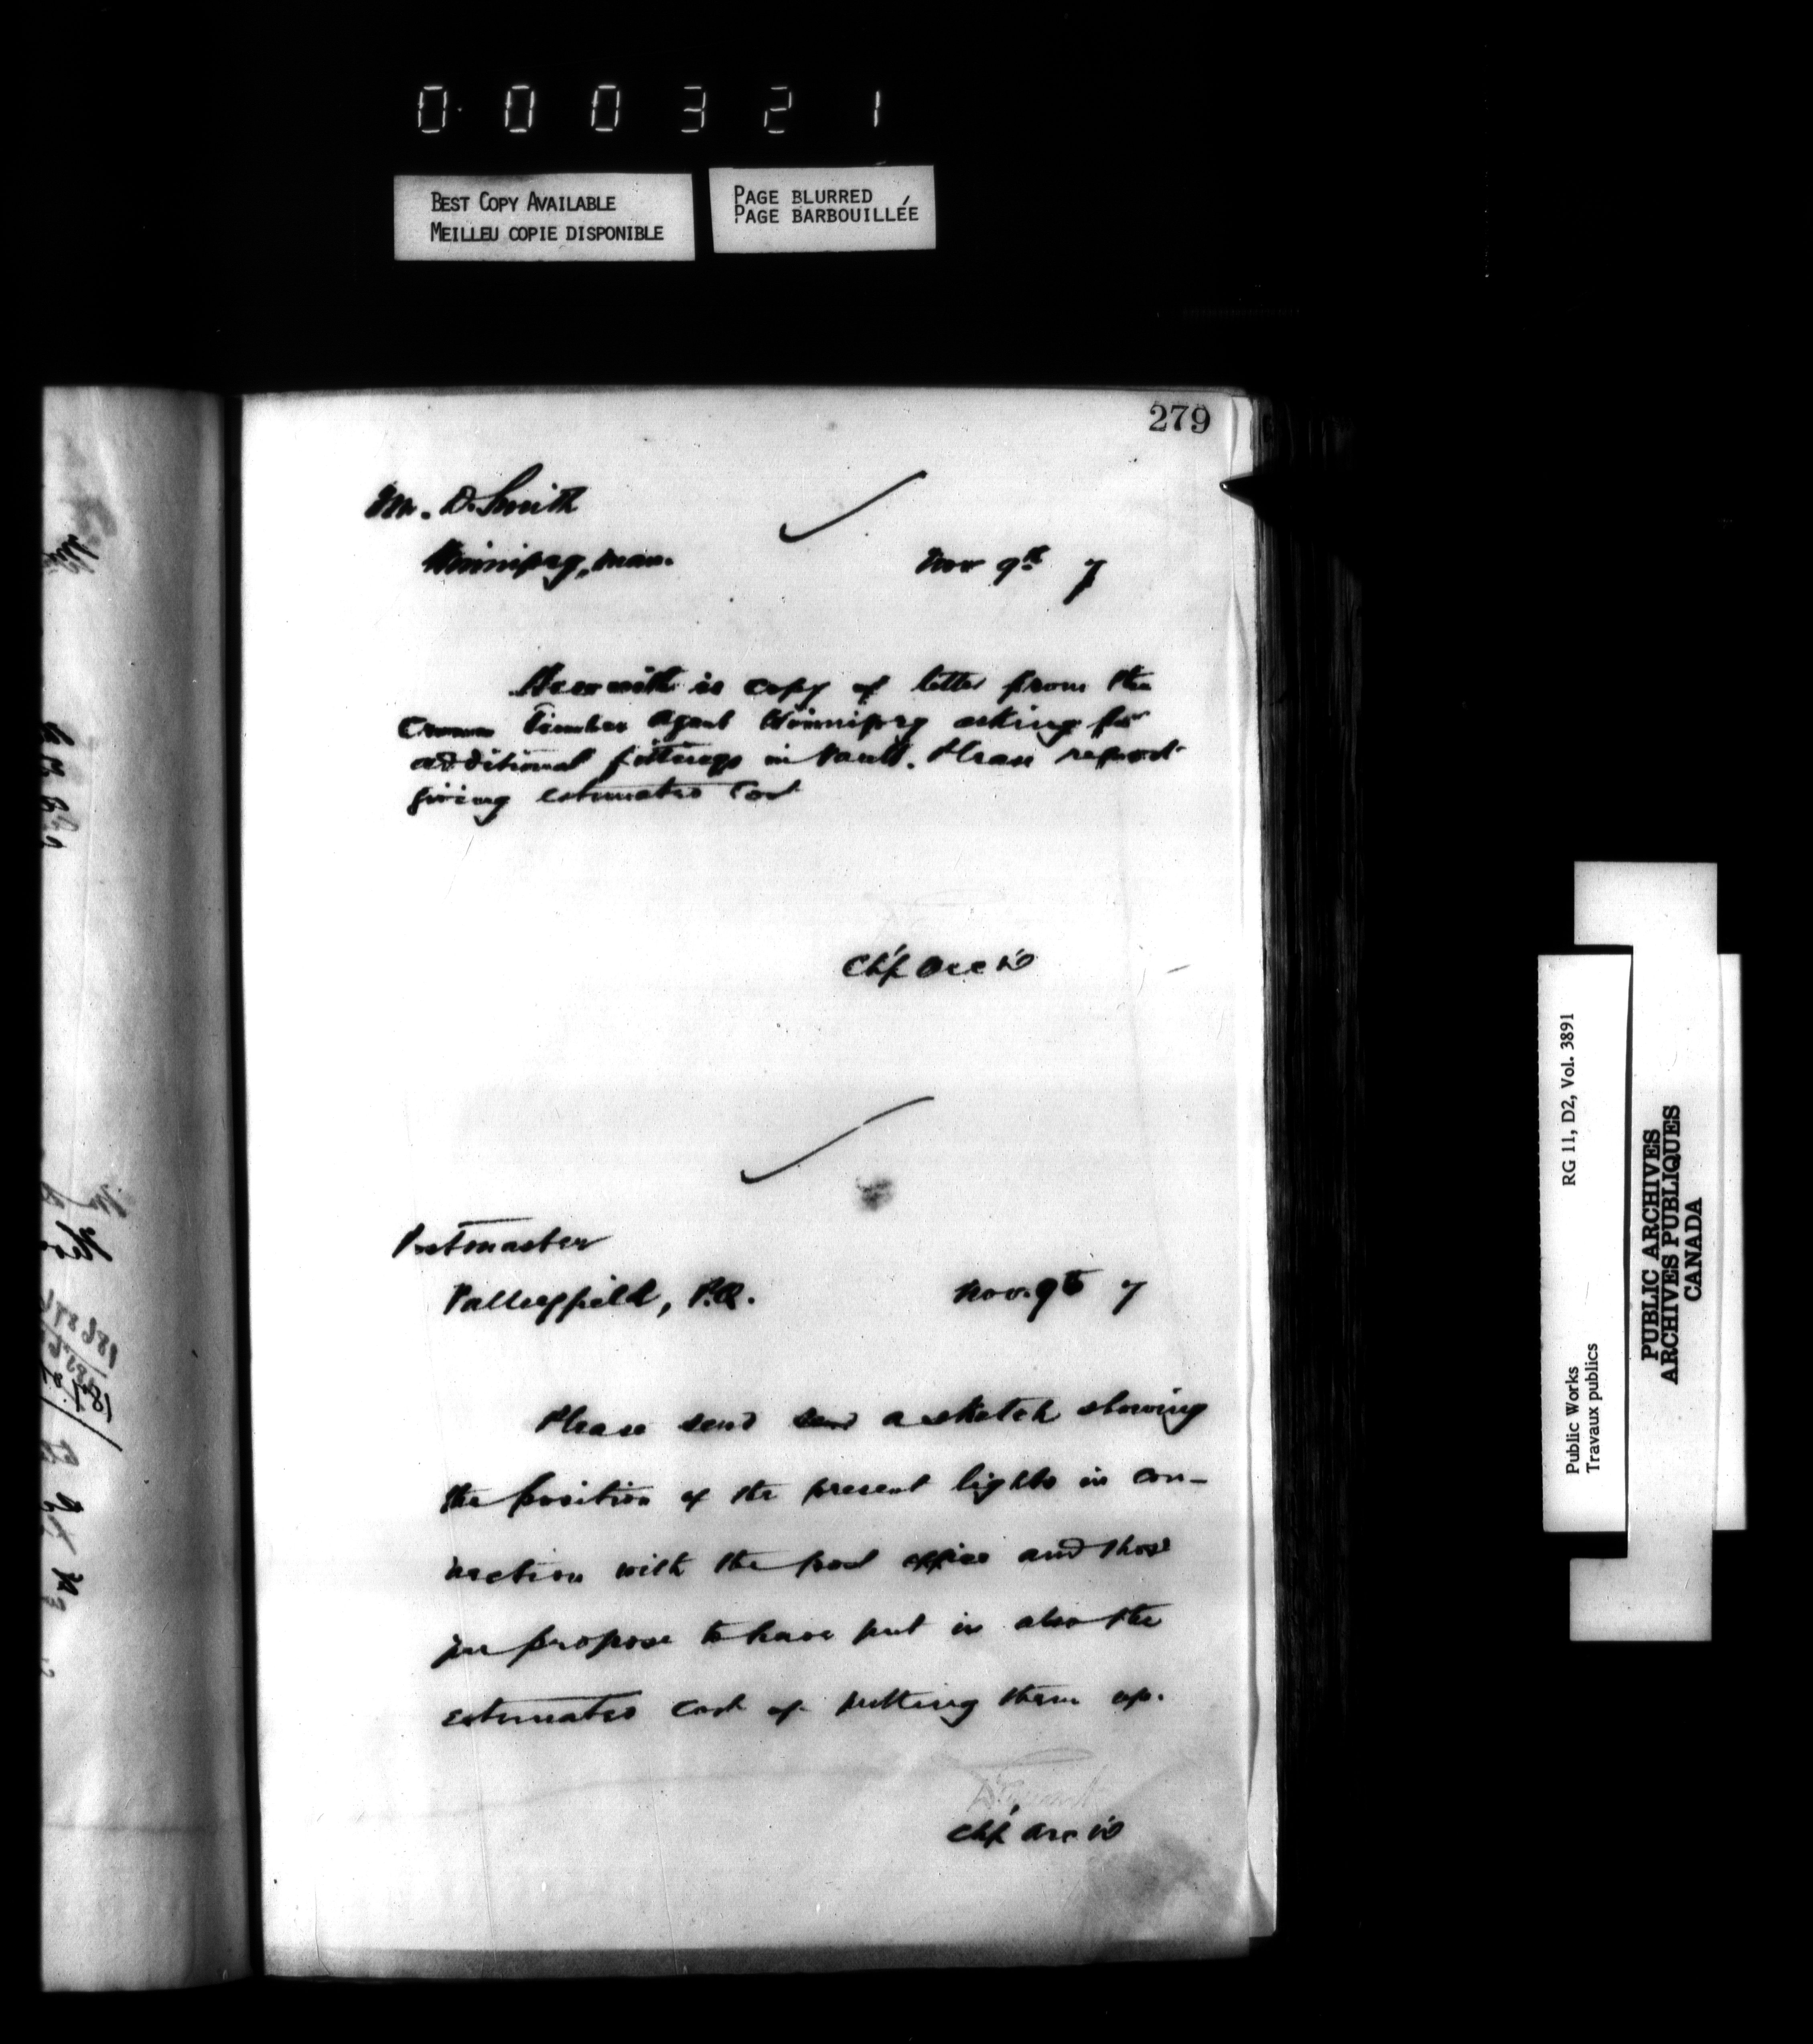 0 0 0 3 2 1
BEST COPY AVAILABLE
MEILLEU COPIE DISPONIBLE
PAGE BLURRED
PAGE BARBOUILLÉE
279
Mr. D. Smith
Winnipeg, Man. Nov 9th 7
Herewith is copy of letter from the
Crown Timber Agent Winnipeg asking for
additional fittings in Vault. Please report
giving estimated Cost
Ch'f Arc't
Postmaster
Valleyfield, P.Q. Nov. 9th 7
Please send send a sketch showing
the position of the present lights in con-
nection with the post office and those
you propose to have put in also the
estimated cost of putting them up.
Ch'f Arc't
RG 11, D2, Vol. 3891
Public Works
Travaux publics
PUBLIC ARCHIVES
ARCHIVES PUBLIQUES
CANADA